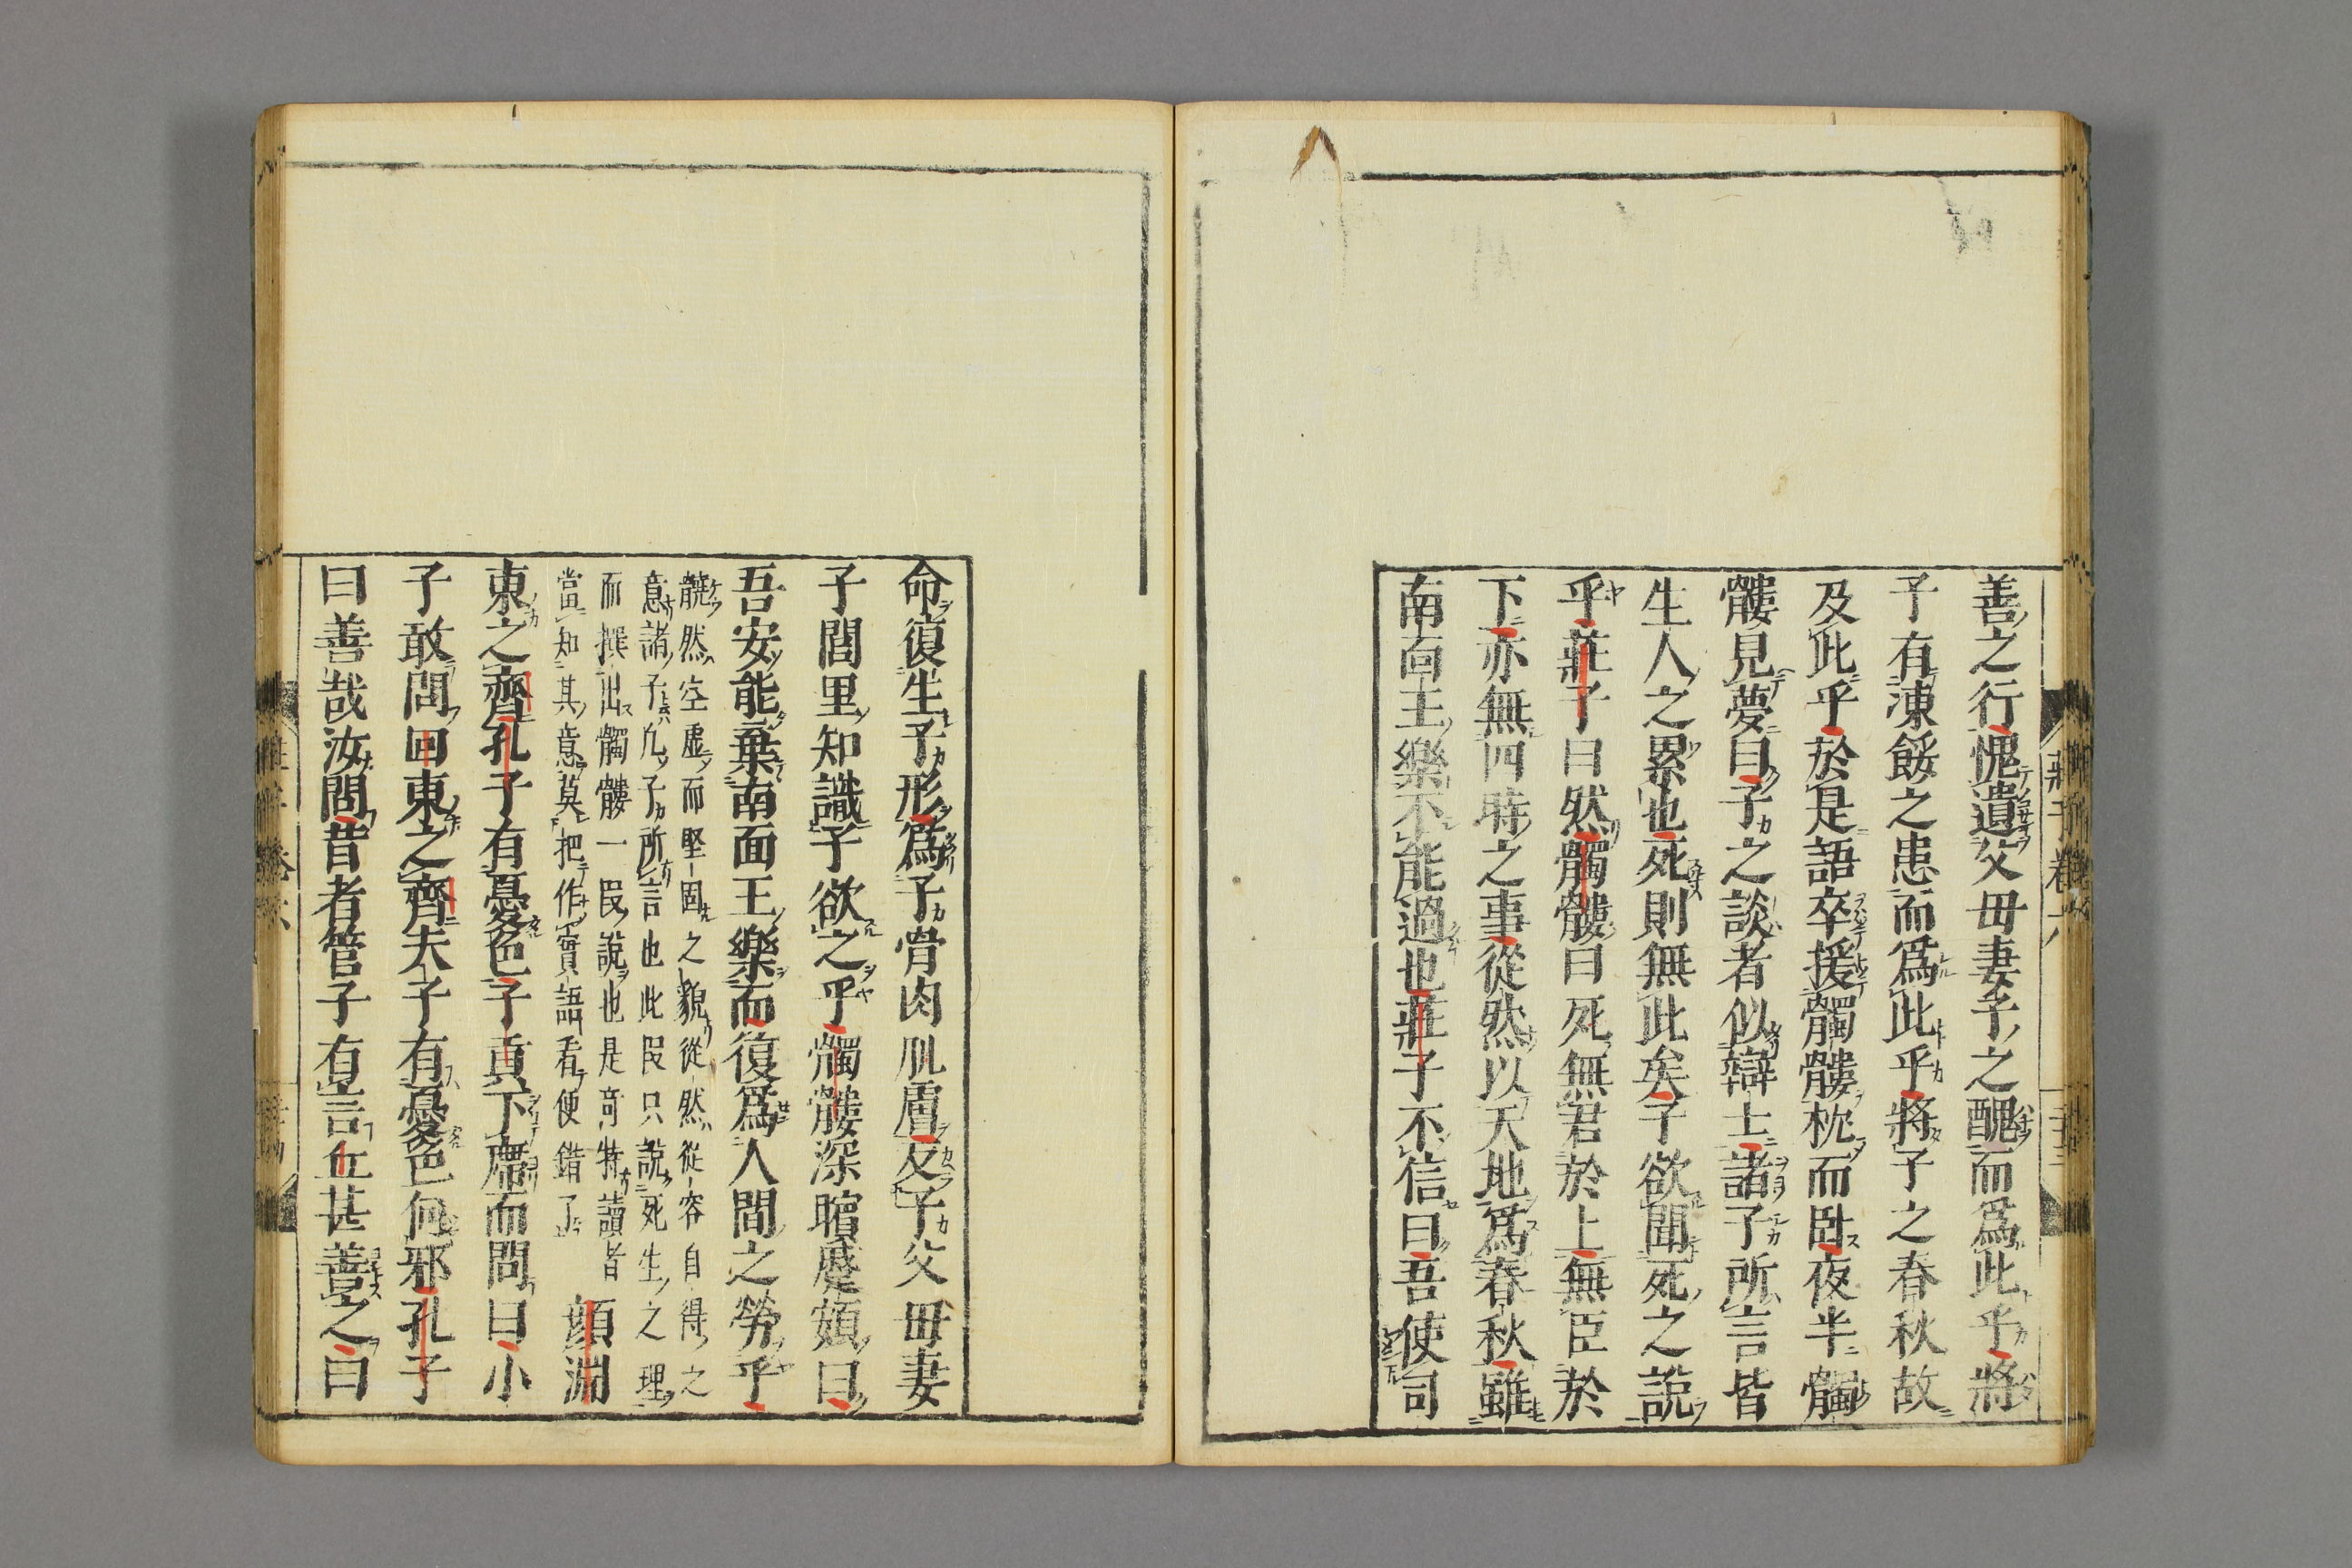 善之行愧遺父母妻子之醜而爲此乎將
子有凍餒之患而爲此乎將子之春秋故
及此乎於是語卒援髑髏枕而臥夜半髑
髏見夢曰子之談者似辯士諸子所言皆
生人之累也死則無此矣子欲聞死之說
乎莊子曰然髑髏曰死無君於上無臣於
下亦無四時之事從然以天地爲春秋雖
南面王樂不能過也莊子不信曰吾使司
命復生子形爲子骨肉肌膚反子父母妻
子閭里知識子欲之乎髑髏深矉蹙頞曰
吾安能棄南面王樂而復爲人間之勞乎
髐然空虛而堅固之貌從然從容自得之
意諸子凡子所言也此段只說死生之理
而撰出髑髏一段說也是奇特讀者
當知其意莫把作實語看便錯了
顏淵
東之齊孔子有憂色子貢下席而問曰小
子敢問回東之齊夫子有憂色何邪孔子
曰善哉汝問昔者管子有言丘甚善之曰